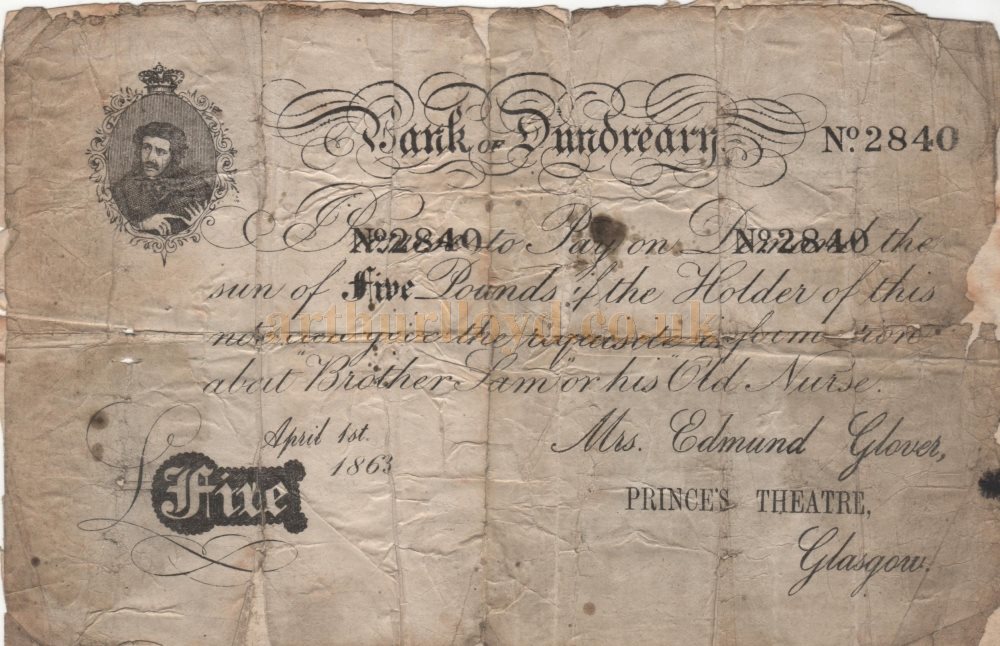 Bank OF Dundreary. No. 2840
I Promise to Pay on Demand the
No. 2840 No. 2840
sun of Five Pounds if the Holder of this
note may give the requisite
arthurlloyd.co.uk
about "Brother Sam" or his "Old Nurse.
April 1st. Mrs. Edmund Glover,
1863
£ Five PRINCE'S THEATRE,
Glasgow.